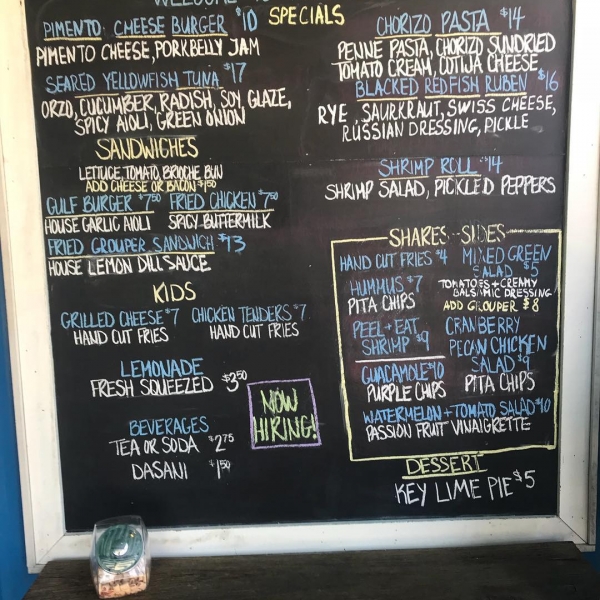 WELCOME
SPECIALS
PIMENTO CHEESE BURGER $10
PIMENTO CHEESE, PORKBELLY JAM
SEARED YELLOWFISH TUNA $17
ORZO, CUCUMBER, RADISH, SOY, GLAZE,
SPICY AIOLI, GREEN ONION
CHORIZO PASTA $14
PENNE PASTA, CHORIZO, SUNDRIED
TOMATO CREAM, COTIJA CHEESE
BLACKED REDFISH RUBEN $16
RYE, SAURKRAUT, SWISS CHEESE,
RUSSIAN DRESSING, PICKLE
SHRIMP ROLL $14
SHRIMP SALAD, PICKLED PEPPERS
SANDWICHES
LETTUCE, TOMATO, BRIOCHE BUN
ADD CHEESE OR BACON $1.50
GULF BURGER $7.50
HOUSE GARLIC AIOLI
FRIED CHICKEN $7.50
SPICY BUTTERMILK
FRIED GROUPER SANDWICH $13
HOUSE LEMON DILL SAUCE
KIDS
GRILLED CHEESE $7
HAND CUT FRIES
CHICKEN TENDERS $7
HAND CUT FRIES
LEMONADE
FRESH SQUEEZED $3.50
BEVERAGES
TEA OR SODA $2.75
DASANI $1.50
NOW
HIRING!
SHARES - SIDES
HAND CUT FRIES $4
HUMMUS $7
PITA CHIPS
PEEL + EAT
SHRIMP $9
GUACAMOLE $10
PURPLE CHIPS
MIXED GREEN
SALAD $5
TOMATOES + CREAMY
BALSAMIC DRESSING
ADD GROUPER $8
CRANBERRY
PECAN CHICKEN
SALAD $9
PITA CHIPS
WATERMELON + TOMATO SALAD $10
PASSION FRUIT VINAIGRETTE
DESSERT
KEY LIME PIE $5